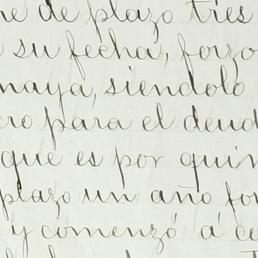 ne de plazo tres
su fecha, forzo
maya, siendolo
ero para el deud
que es por quin
plazo un año for
y comenzó á de